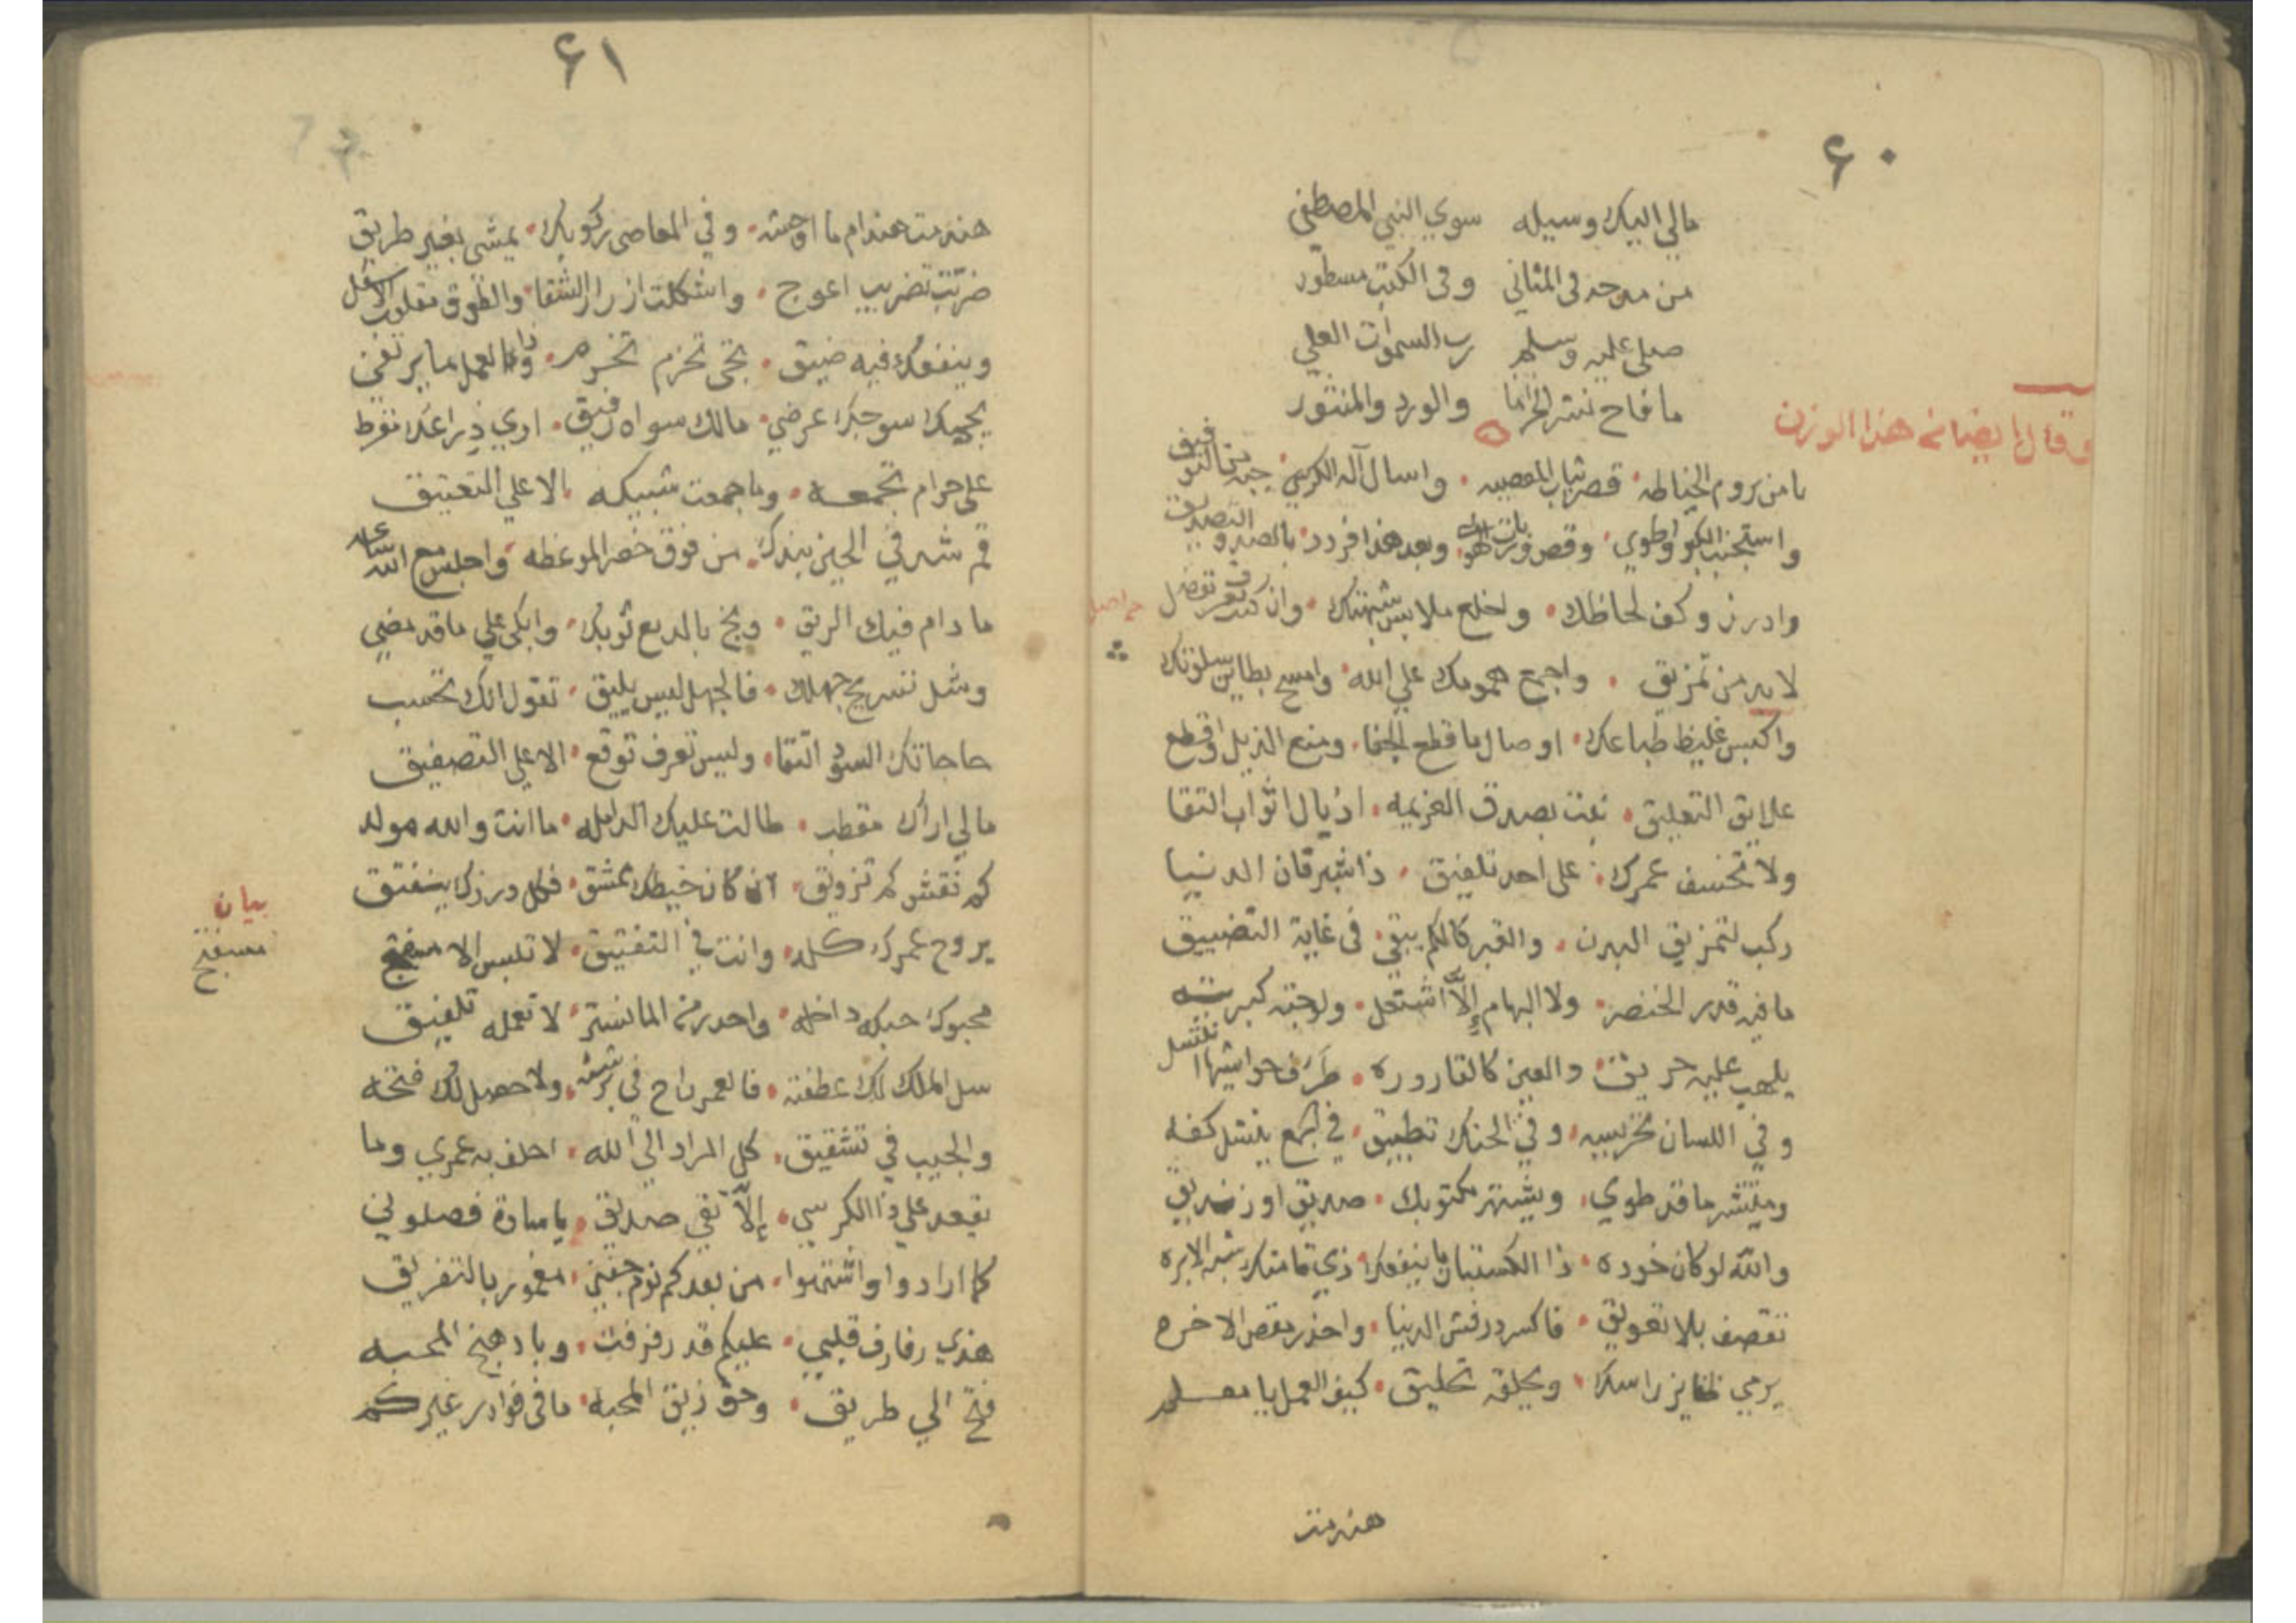 ٦٠
مالي اليك وسيله سوي النبي المصطفى
من مدحه في المثاني وفي الكتب مسطور
صلى عليه وسلم رب السموات العلي
ما فاح نشر الخزاما والورد والمنثور
وقال ايضا في هذا الوزن
يا من يروم الخياطه قصر ثياب المعصيه واسال آله الكرسي
واستجنب الكو اوطوي وقص وبعد هذا افرد بالصدق
وادرز وكف لحاظك واخلع ملابس شهتك وان كنت تعرف تفصل
لابد من تمزيق واجمع همومك علي الله وامسح بطاين سلوتك
واكبس غليظ طباعك اوصال ما قطع الجفا ومنع الذيل اقطع
علايق التعليق نعت بصدق العزيمه اذيال اثواب التقا
ولا تخسف عمرك على احد تلفيق ذا شبرقان الدنيا
ركب لتمزيق البدن والقبر كالكم يبقى في غاية التضييق
ما فيه قدر الخنصر ولا البهام إلا اشتحل ولوحته كبريته
يلهب عليه حريق والعين كالقاروره طرف حواشيها
وفي اللسان تخريبه وفي الحنك تطبيق في كمع ينشل كفه
وينتشر ما قد طوي ويشهر مكتوبك صديق او زنديق
والله لو كان خوده ذا الكستبان ما ينفعك ذي قامتك شبه الابره
تقصف بلا تعويق فاكسر درفش الدنيا واحذر مقص الاخره
يرمي راسك ويحلقه تحليق كيف العمل يا معلم
هندمت
٦١
هندمت هندام ما اوحشه وفي المعاصي ركوبك يمشى بغير طريق
ضربت تضريب اعوج واشكلت ازرار الشقا والطوق مقلوب
وينفعك فيه ضيق تخي تحزم تخرم وذا العمل ما يرتفي
يجيك سوجك عرضي مالك سواه رفيق اري دراعك نقرط
على حرام تجمعه وما جمعت شبيكه الا علي التعتيق
قم شد في الحين بندك من فوق خصر الموعظه واجلس مع الله
ما دام فيك الريق وبخ بالدمع ثوبك وابكي علي ما قد مضي
وشل تسريح جهلك فالجهل ليس يليق تقول انك تحسب
حاجاتك السود التقا وليس تعرف توقع الا علي التصفيق
مالي اراك مقطب طالت عليك الدامله ما انت والله مولد
كم نقش كم تزويق ان كان خيطك بمشق فكل درزك ينفتق
بيان
يروح عمرك كله وانت في التفتيق لا تلبس الا
محبوك حبكه داخله واحدر من المانستر لا تعمله تلفيق
سل الملك لك عطفته فالعمر راح في برشته ولا حصل لك فتحه
والجيب في تشقيق كل المراد الي الله احلف به عمري وما
يقعد علي ذا الكرسي إلا تقي صديق يا سادة فصلوني
كما ارادوا واشتهوا من بعدكم نوم جفني مغمور بالتفريق
هذي رفارف قلبي عليكم قد رفرفت وبادهنج المحبه
فتح الي طريق وحق زيق المحبه ما في فوادي غيركم